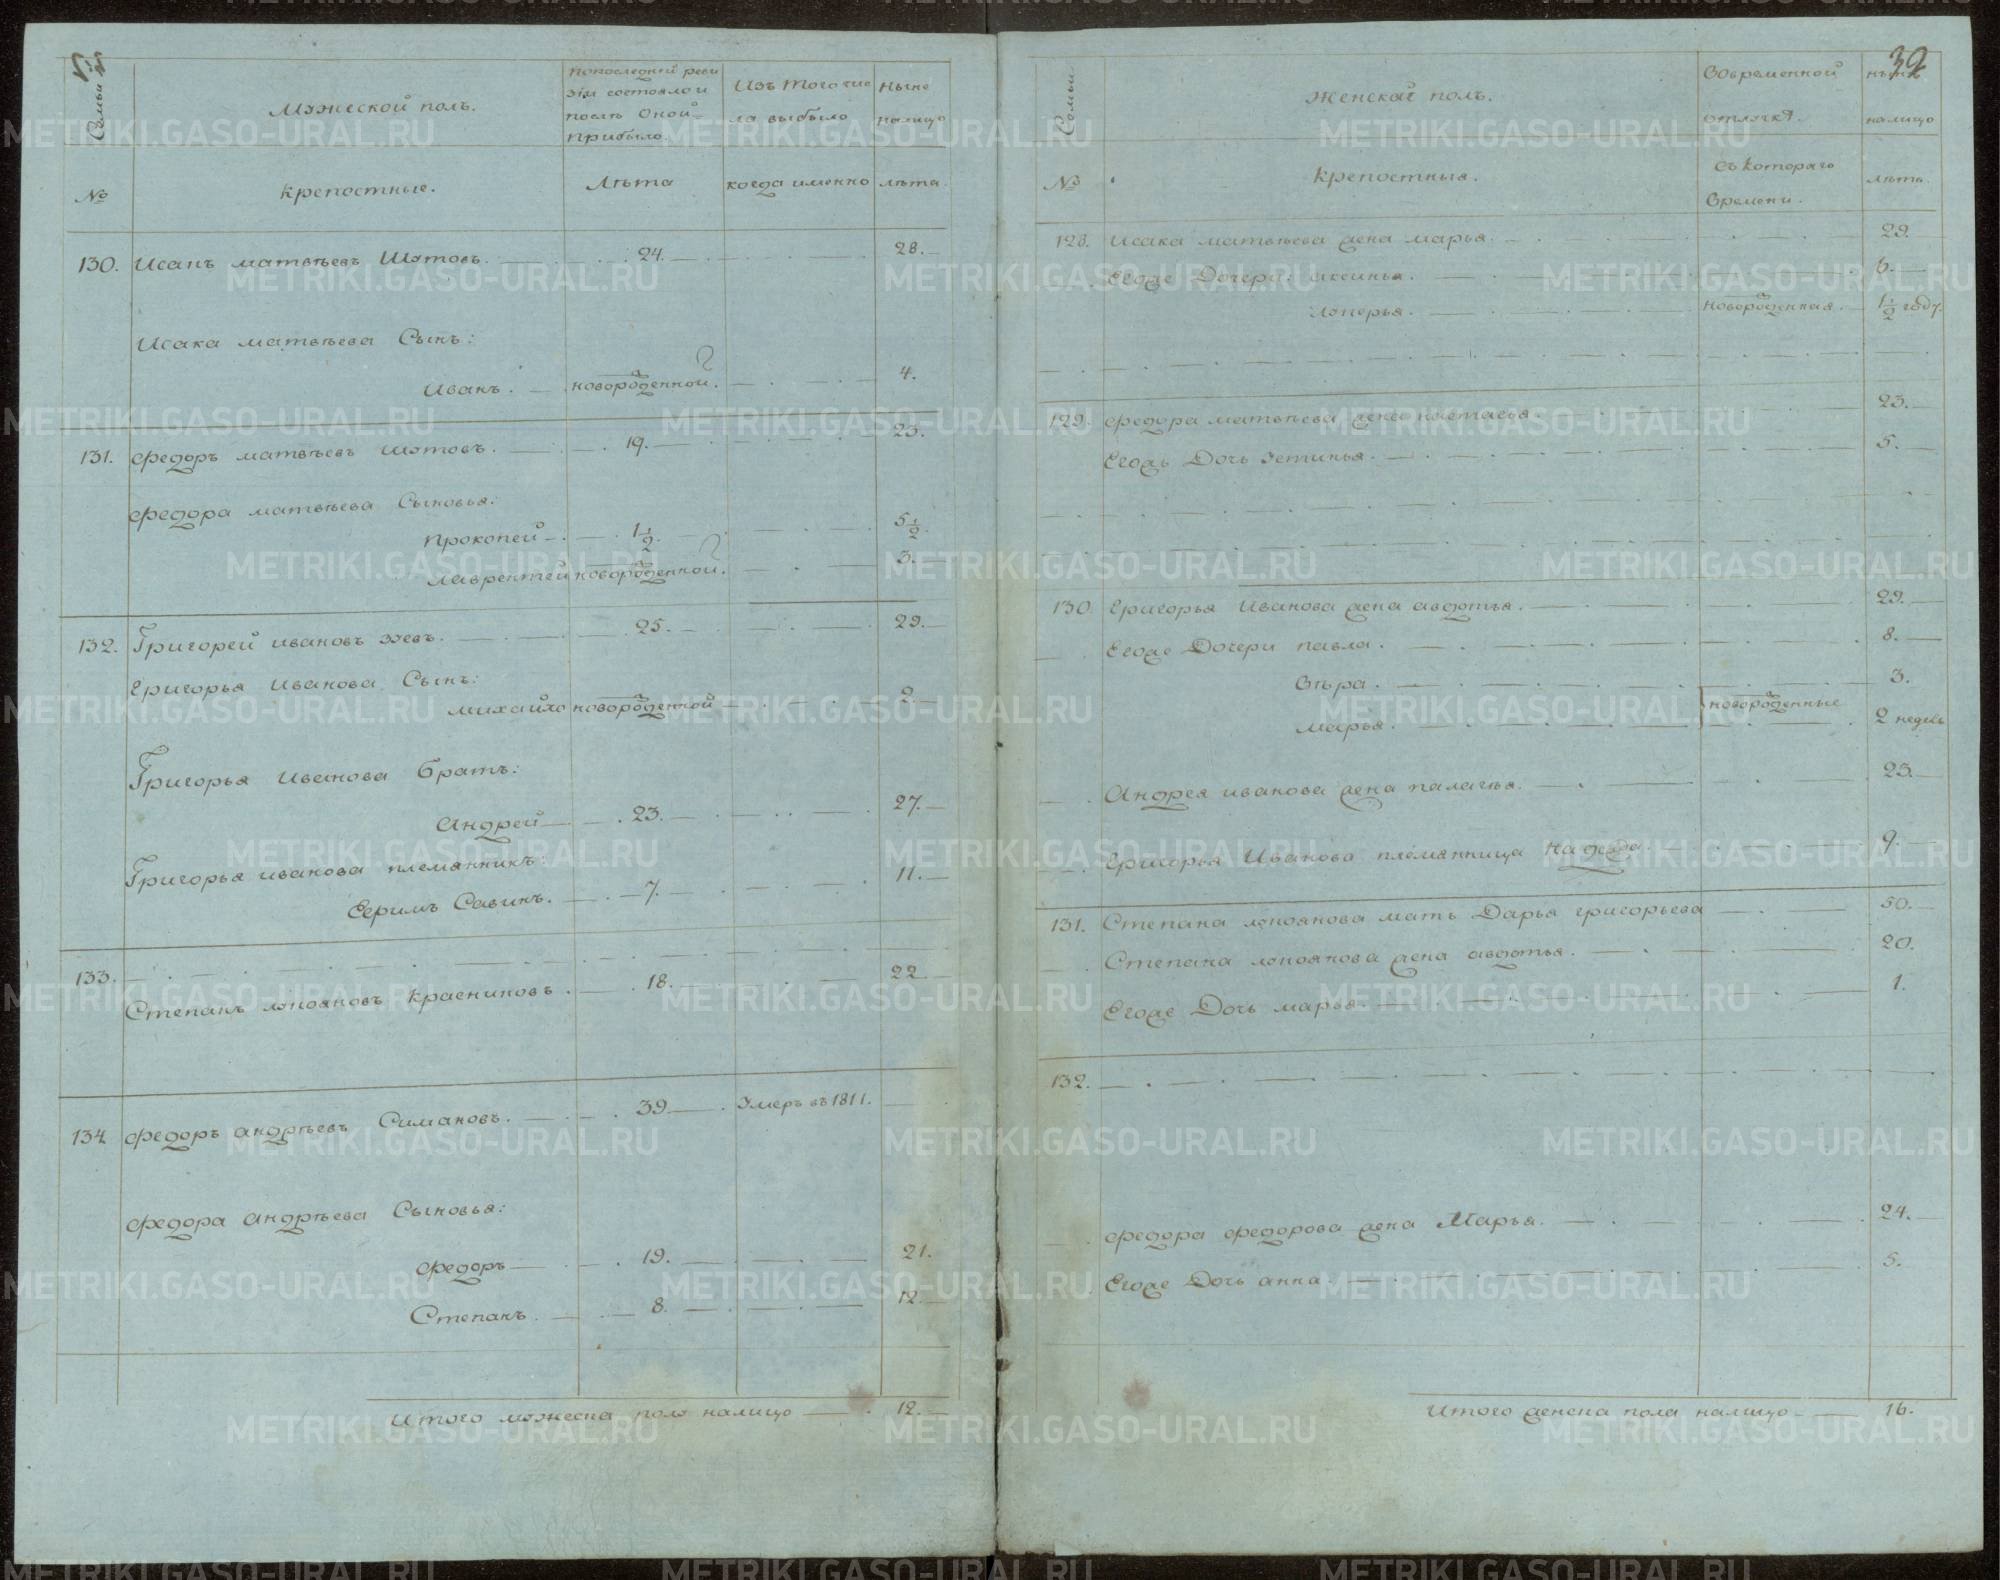 Семьи
Мужеской полъ.
Попоследней реви
зіи состояло и
послѣ Оной
прибыло.
Изъ Того чис
ла выбыло
Ныне
налицо
№
крепостные.
Лѣта
когда именно
лѣта.
130. Исакъ матвѣевъ Шутовъ. 24. 28.
Исака матвѣева Сынъ:
Иванъ. новорожденной. 4.
131. Федоръ матвѣевъ шутовъ. 19. 23.
Федора матвѣева Сыновья:
Прокопей 1 1/2. 5 1/2.
лаврентей новорожденной. 3.
132. Григорей ивановъ 25. 29.
Григорья иванова Сынъ:
михайло новорожденной 2.
Григорья иванова братъ:
Андрей 23. 27.
Григорья иванова племянникъ:
Ефимъ Савинъ. 7. 11.
133.
Степанъ лукояновъ красниковъ. 18. 22
134 Федоръ андрѣевъ Симановъ. 39. умеръ въ 1811.
Федора андрѣева Сыновья:
Федоръ 19. 21.
Степанъ. 8. 12.
Итого мужеска полу налицо 12.
39
Семьи.
Женскаг полъ.
Вовременной
отлучкѣ.
нынѣ
налицо
№
крепостныя.
Съ котораго
Времени.
лѣта.
128. Исака матвѣева жена марья. 29.
Егоже Дочери: аксинья. 6.
лукерья. новорожденная. 1 1/2 году.
129. Федора матвѣева жена настасья. 23.
Егожъ Дочь устинья. 5.
130. Григорья Иванова жена авдотья. 29.
Егоже Дочери павла. 8.
Вѣра. 3.
новорожденные
марья. 2 недель
Андрея иванова жена палагея. 23.
Григорья Иванова племянница надежда. 9.
131. Степана лукоянова мать Дарья григорьева 50.
Степана лукоянова жена авдотья. 20.
Егоже Дочь марья. 1.
132.
Федора федорова жена Марья. 24.
Егоже Дочь анна. 5.
Итого женска пола налицо 16.
METRIKI.GASO-URAL.RU